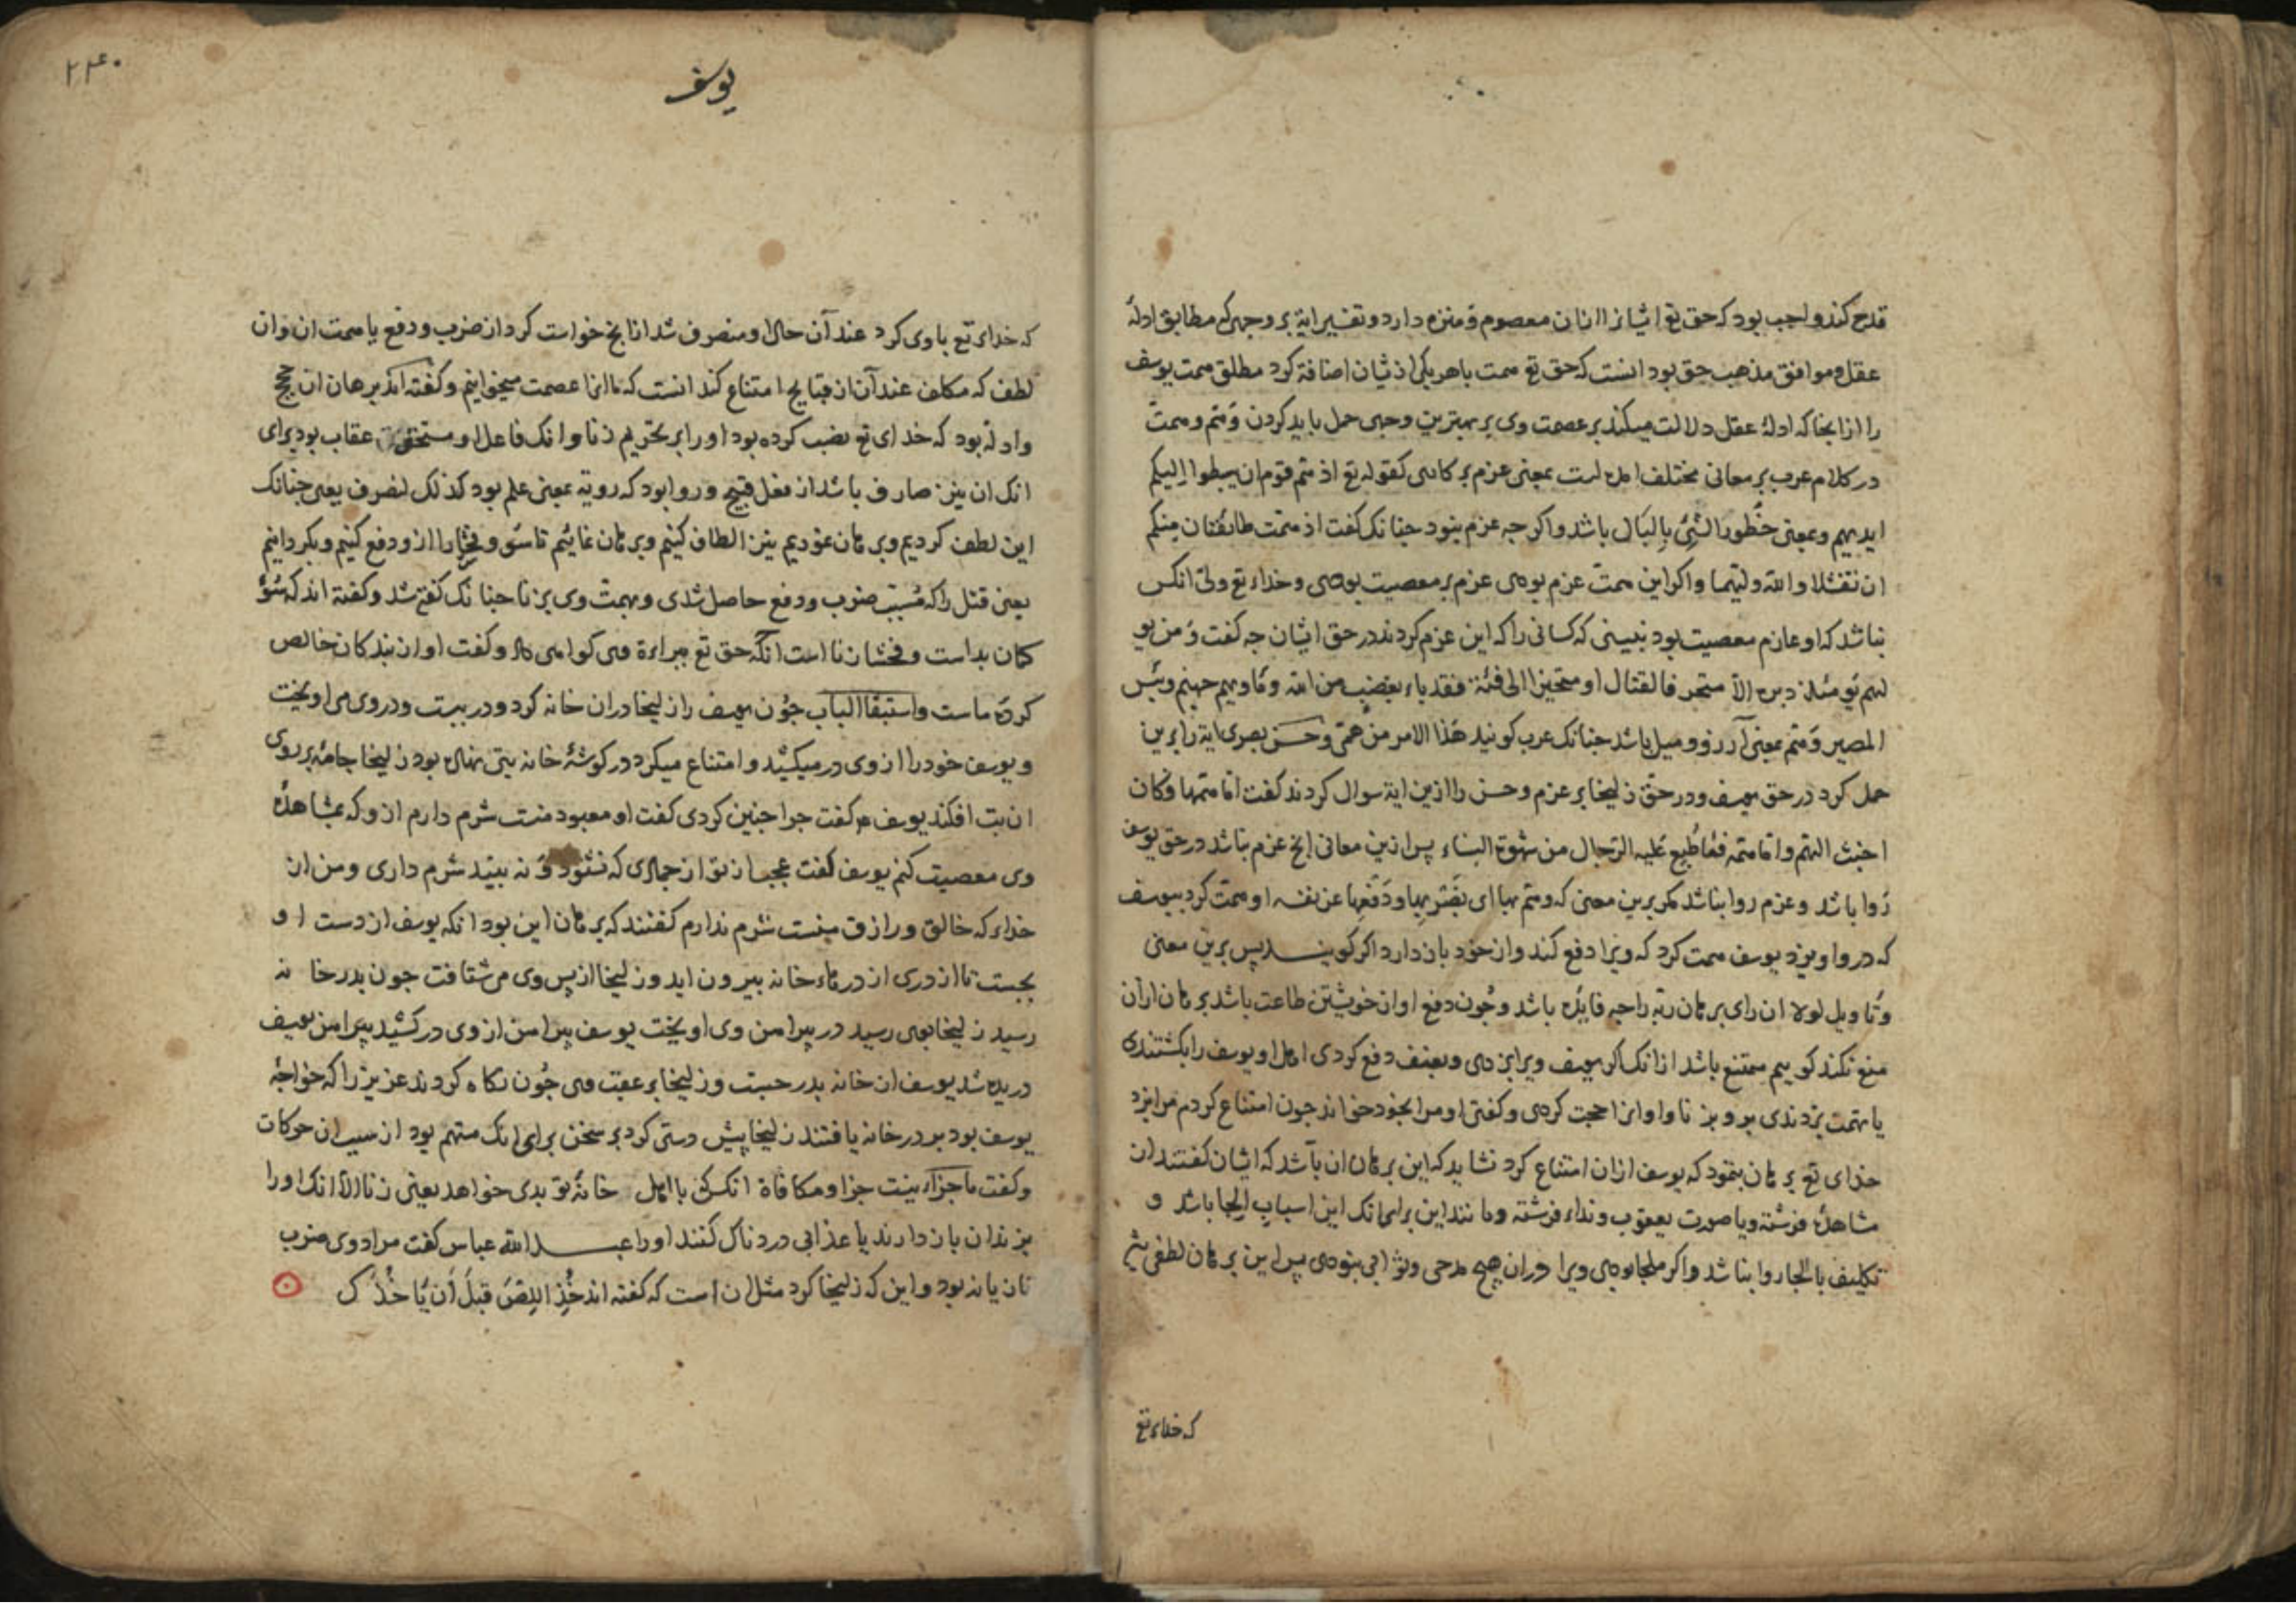 قدح کند واجب بود که حق تع ایشانرا ازان معصوم و منزه دارد و تفسیر ایة بر وجهی که مطابق ادلهٔ
عقل و موافق مذهب حق بود انست که حق تع همت باهر یکی از یشان اضافة کرد مطلق همت یوسف
را ازانجا که ادلهٔ عقل دلالت میکند بر عصمت وی بر بهترین وجهی حمل باید کردن وَهَم و همت
در کلام عرب بر معانی مختلف امده است بمعنی عزم بر کاری کقوله تع اذ هم قوم ان یبطوا الیکم
ایدیهم و بمعنی خُطُور الشیِٔ بِالبَال باشد واکر جه عزم نبود جنانک کفت اذ همت طائفتان منکم
ان تفشلا والله ولیهما واکر این همت عزم بودی عزم بر معصیت بودی و خداء تع ولیّ انکس
نباشد که او عازم معصیت بود نبینی که کسانی را که این عزم کردند در حق ایشان جه کفت وَ من یو
لهم یَومئذ دبره الاّ متحرفا لقتال او متحیزا الی فئة فقد باء بغضب من الله و ماویهم جهنم و بئس
المصیر وَ هَم بمعنی آرزو و میل باشد جنانک عرب کویند هَذا الامر من هَمّی و حسن بصری ایة را برین
حمل کرد در حق یوسف و در حق زلیخا بر عزم و حسن را ازین ایة سوال کردند کفت اما همها فکان
اخبث الهم و اما همه فمَا طُبِع عَلیه الرّجال من شهوة النساء پس ازین معانی انج عزم نباشد در حق یوسف
رَوا باشد و عزم روا نباشد مکر برین معنی که و هم بها ای بضَربِها و دَفعِها عن نفسه او همت کرد بیوسف
که در و اویزد یوسف همت کرد که ویرا دفع کند و از خود باز دارد اکر کویند پس برین معنی
وَتاویل لولا ان رای برهان ربّه را جه فایده باشد وجُون دفع او از خویشتن طاعت باشد برهان ازان
منع نکند کوییم ممتنع باشد ازانک اکر یوسف ویرا بزدی و بعنف دفع کردی اهل او یوسف را بکشتندی
یا تهمت بزدندی برو بز نا و او انرا حجت کردی و کفتی او مرا بخود خواند جون امتناع کردم مرا بزد
خدای تع برهان بنمود که یوسف ازان امتناع کرد نشاید که این برهان ان باشد که ایشان کفتند از
مشاهدهٔ فرشته و یا صورت یعقوب و نداء فرشته و مانند این برای انک این اسباب الجا باشد و
تکلیف با الجا روا نباشد واکر ملجا بودی ویرا دران هیچ مدحی و ثوابی نبودی پس این برهان لطفی
که خداء تع
۲۴۰
یوسف
که خدای تع باوی کرد عند آن حال او منصرف شد ازانج خواست کرد از ضرب و دفع یا همت ان و ان
لطف که مکلف عند آن از قبایح امتناع کند انست که ما انرا عصمت میخوانیم و کفته اند برهان ان حجج
و ادله بود که خدای تع نصب کرده بود او را بر تحریم زنا و انک فاعل او مستحق عقاب بود برای
انک ان نیز صارف باشد از فعل قبیح و روا بود که رویة بمعنی علم بود کذلک لنصرف یعنی جنانک
این لطف کردیم و برهان نمودیم نیز الطاف کنیم و برهان نماییم تا سُو و فحشا را ازو دفع کنیم و بکردانیم
یعنی قتل را که مُسبّب ضرب و دفع حاصل شدی و تهمت وی بزنا جنانک کفته شد و کفته اند که سُؤ
کمان بد است و فحشا زنا است انکَه حق تع ببراءة وی کواهی داد و کفت او از بندکان خالص
کردهٔ ماست واستبقا الباب جُون یوسف را زلیخا دران خانه کرد و در ببست و در وی می اویخت
و یوسف خود را از وی در میکشید و امتناع میکرد در کوشهٔ خانه بتی نهاده بود زلیخا جامهٔ بر روی
ان بت افکند یوسف ع کفت جرا جنین کردی کفت او معبود منست شرم دارم ازو که بمشاهدهٔ
وی معصیت کنم یوسف کفت عجب از تو از جمادی که نشنود وَ نه بیند شرم داری و من از
خداء که خالق و رازق منست شرم ندارم کفتند که برهان این بود انکه یوسف از دست او
بجست تا از دری از درهاء خانه بیرون اید و زلیخا از پس وی می شتافت جون بدر خا نه
رسید زلیخا بوی رسید در پیراهن وی اویخت یوسف پیراهن از وی در کشید پیراهن یوسف
دریده شد یوسف از خانه بدر جست و زلیخا بر عقب وی جُون نکاه کردند عزیز را که خواجهٔ
یوسف بود بر در خانه یافتند زلیخا پیش دستی کرد بر سخن برای انک متهم بود از سبب ان حرکات
و کفت ما جزاء نیست جزا و مکافاة انکس که با اهل خانهٔ تو بدی خواهد یعنی زنا الاّ انک او را
بزندان باز دارند یا عذابی دردناک کنند او را عبد الله عباس کفت مراد وی ضرب
تازیانه بود و این که زلیخا کرد مثل ان است که کفته اند خُذِ اللِصَ قَبلَ أن یَاخُذَک